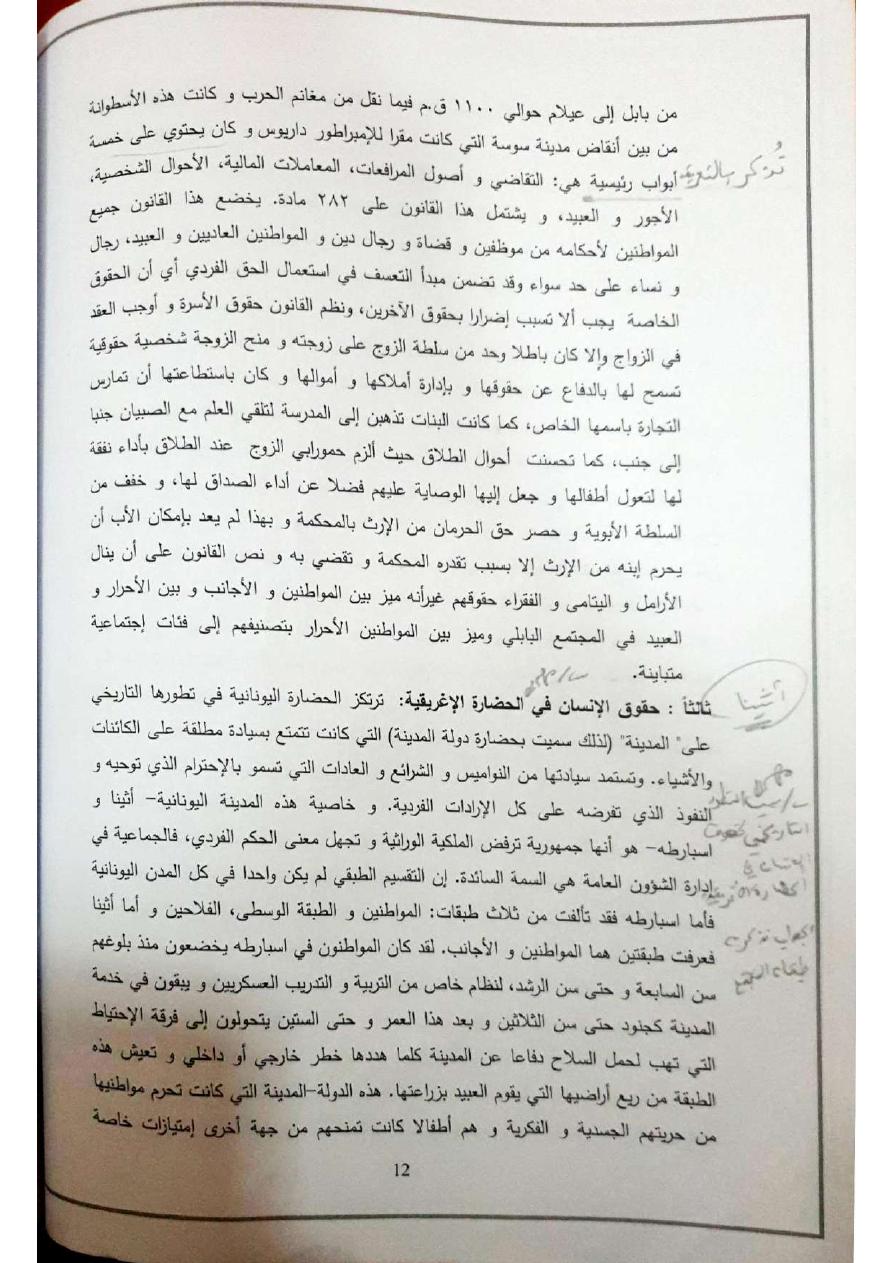 من بابل إلى عيلام حوالي ١١٠٠ ق.م فيما نقل من مغانم الحرب و كانت هذه الأسطوانة
من بين أنقاض مدينة سوسة التي كانت مقرا للإمبراطور داريوس و كان يحتوي على خمسة
تُذكر بالتعريف
أبواب رئيسية هي: التقاضي و أصول المرافعات، المعاملات المالية، الأحوال الشخصية،
الأجور و العبيد، و يشتمل هذا القانون على ٢٨٢ مادة. يخضع هذا القانون جميع
المواطنين لأحكامه من موظفين و قضاة و رجال دين و المواطنين العاديين و العبيد، رجال
و نساء على حد سواء وقد تضمن مبدأ التعسف في استعمال الحق الفردي أي أن الحقوق
الخاصة يجب ألا تسبب إضرارا بحقوق الآخرين، ونظم القانون حقوق الأسرة و أوجب العقد
في الزواج وإلا كان باطلا وحد من سلطة الزوج على زوجته و منح الزوجة شخصية حقوقية
تسمح لها بالدفاع عن حقوقها و بإدارة أملاكها و أموالها و كان باستطاعتها أن تمارس
التجارة باسمها الخاص، كما كانت البنات تذهبن إلى المدرسة لتلقي العلم مع الصبيان جنبا
إلى جنب، كما تحسنت أحوال الطلاق حيث ألزم حمورابي الزوج عند الطلاق بأداء نفقة
لها لتعول أطفالها و جعل إليها الوصاية عليهم فضلا عن أداء الصداق لها، و خفف من
السلطة الأبوية و حصر حق الحرمان من الإرث بالمحكمة و بهذا لم يعد بإمكان الأب أن
يحرم إبنه من الإرث إلا بسبب تقدره المحكمة و تقضي به و نص القانون على أن ينال
الأرامل و اليتامى و الفقراء حقوقهم غيرأنه ميز بين المواطنين و الأجانب و بين الأحرار و
العبيد في المجتمع البابلي وميز بين المواطنين الأحرار بتصنيفهم إلى فئات إجتماعية
متباينة.
أثينا
ثالثاً : حقوق الإنسان في الحضارة الإغريقية: ترتكز الحضارة اليونانية في تطورها التاريخي
على" المدينة" (لذلك سميت بحضارة دولة المدينة) التي كانت تتمتع بسيادة مطلقة على الكائنات
والأشياء. وتستمد سيادتها من النواميس و الشرائع و العادات التي تسمو بالإحترام الذي توحيه و
النفوذ الذي تفرضه على كل الإرادات الفردية. و خاصية هذه المدينة اليونانية- أثينا و
اسبارطه- هو أنها جمهورية ترفض الملكية الوراثية و تجهل معنى الحكم الفردي، فالجماعية في
إدارة الشؤون العامة هي السمة السائدة. إن التقسيم الطبقي لم يكن واحدا في كل المدن اليونانية
فأما اسبارطه فقد تألفت من ثلاث طبقات: المواطنين و الطبقة الوسطى، الفلاحين و أما أثينا
فعرفت طبقتين هما المواطنين و الأجانب. لقد كان المواطنون في اسبارطه يخضعون منذ بلوغهم
سن السابعة و حتى سن الرشد، لنظام خاص من التربية و التدريب العسكريين و يبقون في خدمة
المدينة كجنود حتى سن الثلاثين و بعد هذا العمر و حتى الستين يتحولون إلى فرقة الإحتياط
التي تهب لحمل السلاح دفاعا عن المدينة كلما هددها خطر خارجي أو داخلي و تعيش هذه
الطبقة من ريع أراضيها التي يقوم العبيد بزراعتها. هذه الدولة-المدينة التي كانت تحرم مواطنيها
من حريتهم الجسدية و الفكرية و هم أطفالا كانت تمنحهم من جهة أخرى إمتيازات خاصة
12